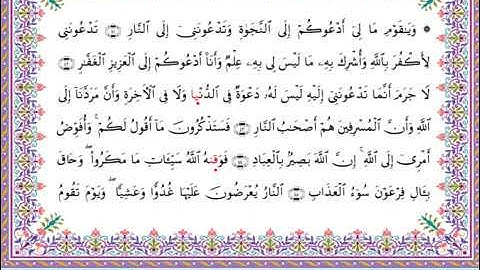 ۞ وَيَٰقَوْمِ مَا لِيٓ أَدْعُوكُمْ إِلَى ٱلنَّجَوٰةِ وَتَدْعُونَنِيٓ إِلَى ٱلنَّارِ ۝ تَدْعُونَنِي
لِأَكْفُرَ بِٱللَّهِ وَأُشْرِكَ بِهِۦ مَا لَيْسَ لِي بِهِۦ عِلْمٌ وَأَنَا۠ أَدْعُوكُمْ إِلَى ٱلْعَزِيزِ ٱلْغَفَّٰرِ ۝
لَا جَرَمَ أَنَّمَا تَدْعُونَنِيٓ إِلَيْهِ لَيْسَ لَهُۥ دَعْوَةٌ فِي ٱلدُّنْيَا وَلَا فِي ٱلْأٓخِرَةِ وَأَنَّ مَرَدَّنَآ إِلَى
ٱللَّهِ وَأَنَّ ٱلْمُسْرِفِينَ هُمْ أَصْحَٰبُ ٱلنَّارِ ۝ فَسَتَذْكُرُونَ مَآ أَقُولُ لَكُمْ ۚ وَأُفَوِّضُ
أَمْرِيٓ إِلَى ٱللَّهِ ۚ إِنَّ ٱللَّهَ بَصِيرٌۢ بِٱلْعِبَادِ ۝ فَوَقَىٰهُ ٱللَّهُ سَيِّـَٔاتِ مَا مَكَرُوا۟ ۖ وَحَاقَ
بِـَٔالِ فِرْعَوْنَ سُوٓءُ ٱلْعَذَابِ ۝ ٱلنَّارُ يُعْرَضُونَ عَلَيْهَا غُدُوًّا وَعَشِيًّا ۖ وَيَوْمَ تَقُومُ